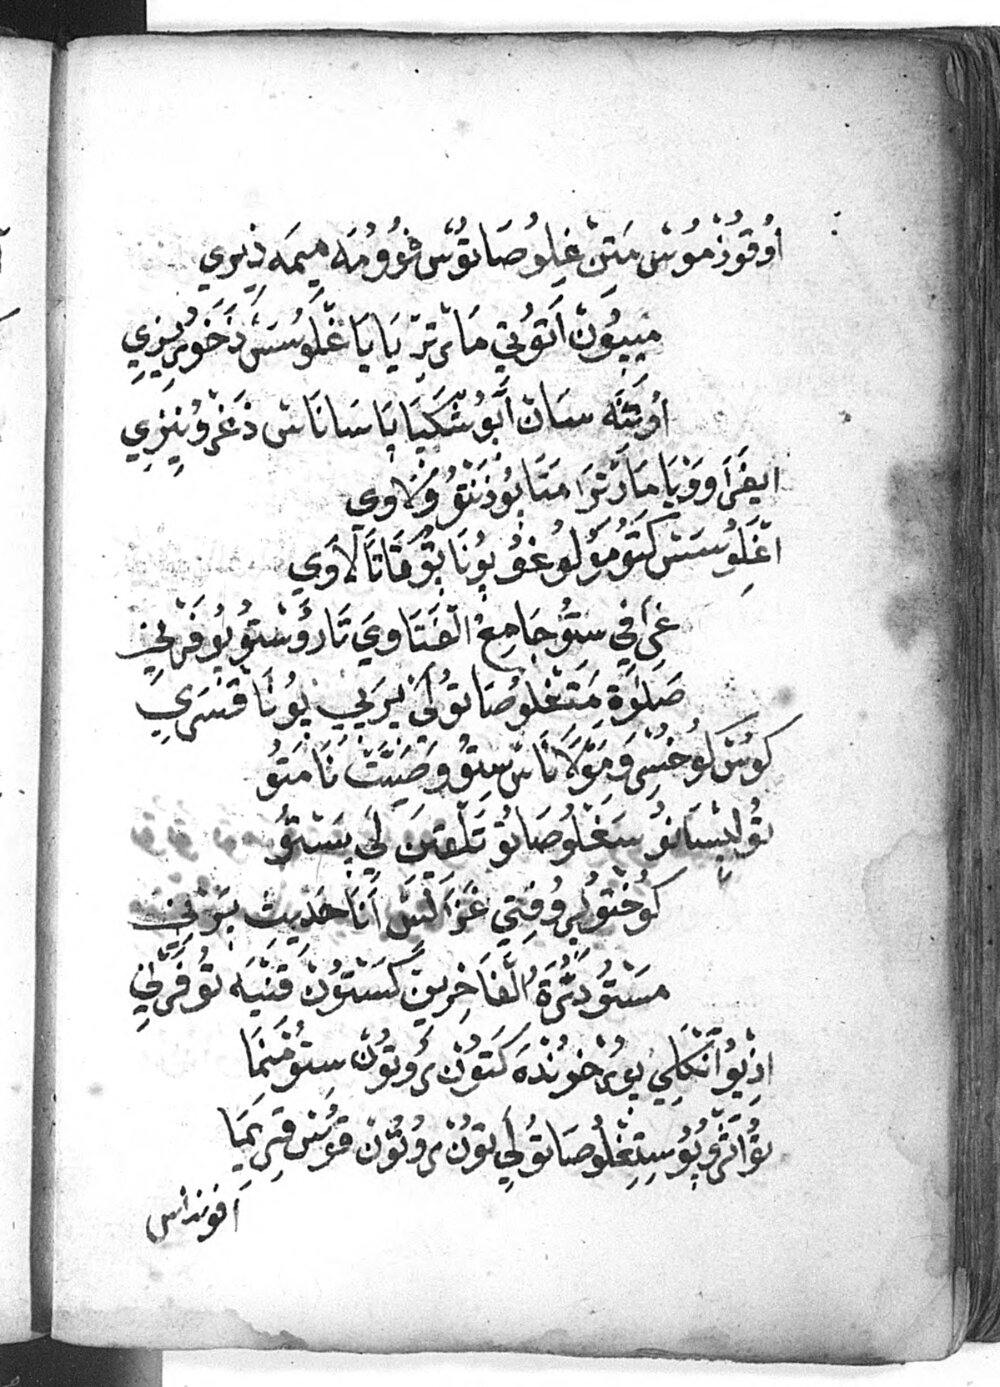 اُوقوُذْمُوسْ مَتِنْ غِلُوصَاتوُسْ فوُومُمَه مِيمَه ذِيرِي
مَيِيوُنْ اَتوُتِي مَاسْ تِرْ يَايَا غْلُوسَسْ ذَخَوُرِيزِي
اُوتَنَه سَانْ اَبوُسْكَيَا يَاسَانَاسْ ذَغْرُونِيزِي
اَيفَرَاووَيَا مَارْتِرَا مَتَابُوذَنتوُ وَلَاوِي
اغَلِوُسَسْ كَتوُمَوُلوُغوُ بوُنَا بوُقَاتَالَاوِي
غِرَافِي سْتوُ جَامِعُ الْفَتَاوِي تَارُوسْتوُ بوُفَرْنِي
صَلوٰةِ مَتغْلُوصَاتوُلِي يَرَبِي بوُنَا قَنسَرِي
كوُسْ كَلوُخُسِي وَمَوْلَانَاسْ سْتوُ وَصِيَّتْ نَامَتوُ
توُلِيسَانوُ سَغْلُوصَاتوُ تَلْقِينْ لِي سْتوُ
كوُخْتوُلِرُوفِتِي غَزَالِيسْ اَنَا حَدِيثْ بَرْنِي
مَسْتوُ دُرَّةُ الْفَاخِرِينْ كَسْتوُنْ قَنْيَه توُفَرْنِي
اذِيوُ انْكَلِي يوُرْخوُنْدَه كَتوُنْ رُوتوُنْ سِتوُمَنِمَا
توُاتْرُوبوُسِتغْلُوصَاتوُلِي توُنْ رُوتوُنْ قوُسْ قِرِيمِيَا
افونداس